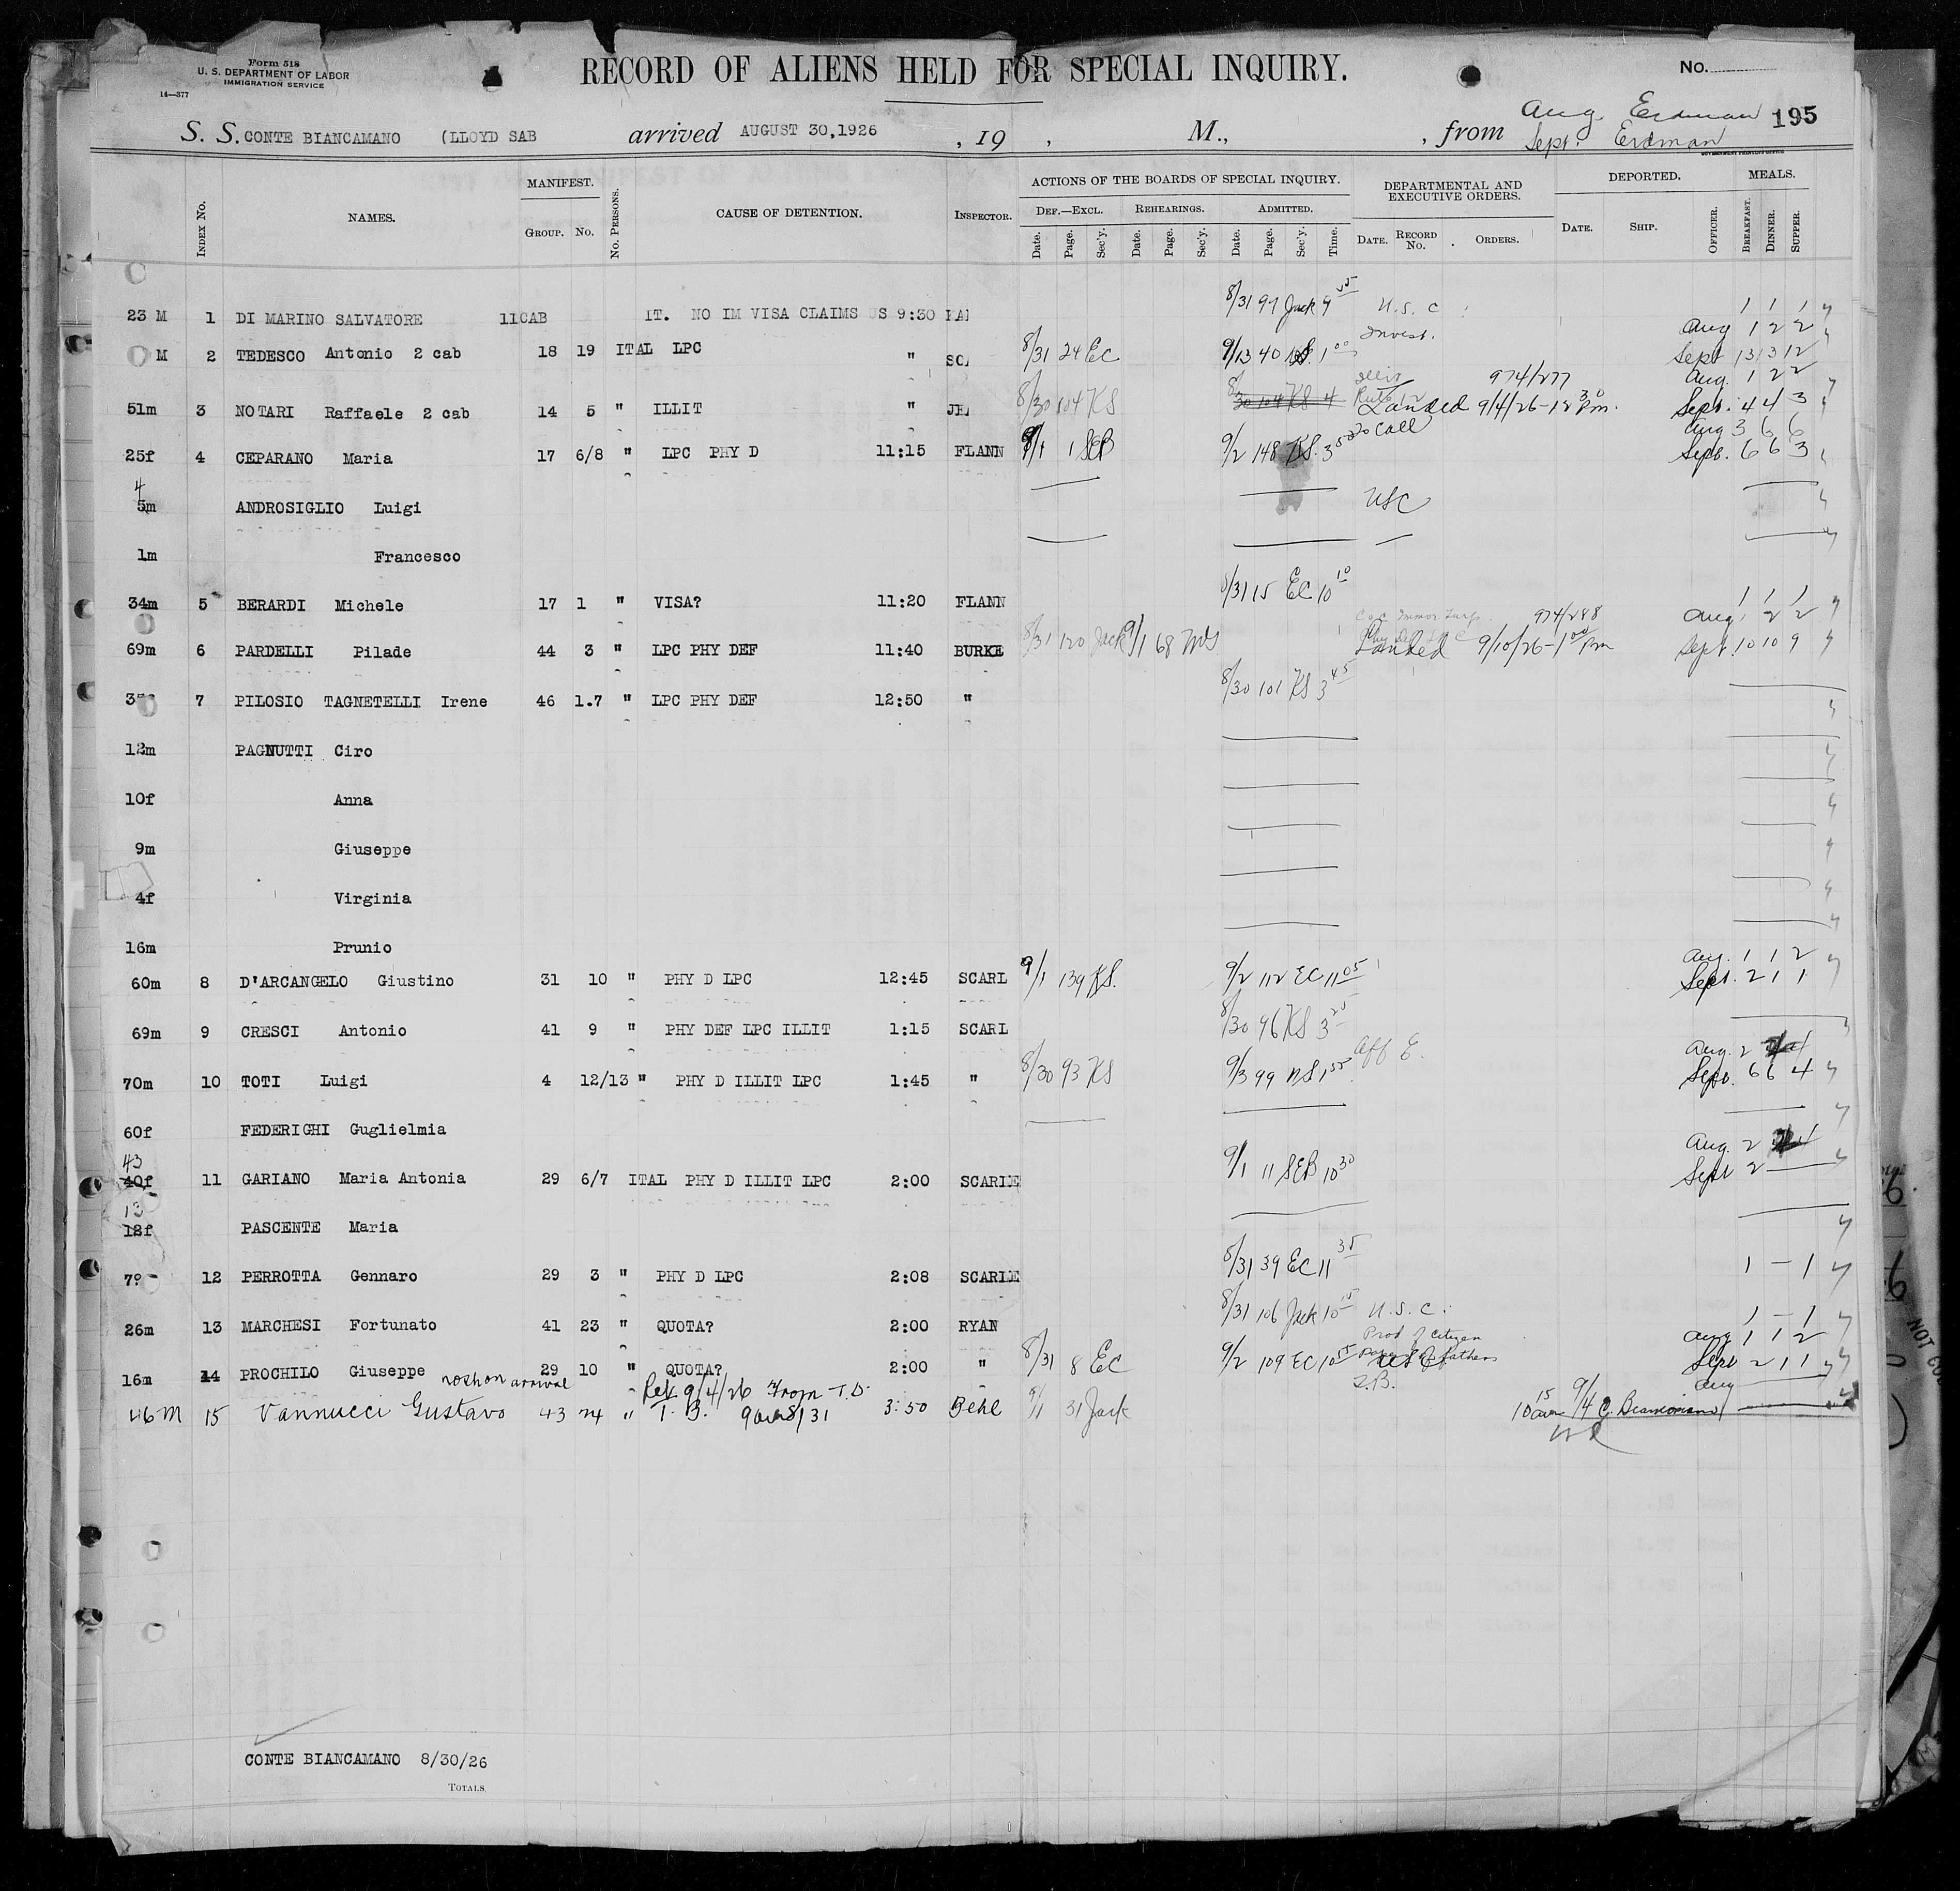 Form 518
U. S. DEPARTMENT OF LABOR
IMMIGRATION SERVICE
14—377
RECORD OF ALIENS HELD FOR SPECIAL INQUIRY.
No.
195
Aug. Erdman
S. S. CONTE BIANCAMANO (LLOYD SAB arrived AUGUST 30,1926 , 19 , M., , from Sept. Erdman
GOVERNMENT PRINTING OFFICE
INDEX No. NAMES. MANIFEST. GROUP. No. No. PERSONS. CAUSE OF DETENTION. INSPECTOR. ACTIONS OF THE BOARDS OF SPECIAL INQUIRY. DEF.—EXCL. Date. Page. Sec'y. REHEARINGS. Date. Page. Sec'y. ADMITTED. Date. Page. Sec'y. Time. DEPARTMENTAL AND EXECUTIVE ORDERS. DATE. RECORD No. ORDERS. DEPORTED. DATE. SHIP. OFFICER. MEALS. BREAKFAST. DINNER. SUPPER.
23 M 1 DI MARINO SALVATORE 11CAB IT. NO IM VISA CLAIMS US 9:30 8/31 97 Jack 9 55 U.S.C 1 1 1
M 2 TEDESCO Antonio 2 cab 18 19 ITAL LPC " 8/31 24 EC 9/13 40 1 00 Invest. Aug 1 2 2 Sept 13 13 12
51m 3 NOTARI Raffaele 2 cab 14 5 " ILLIT " 8/30 104 KS 8/30 104 KS 4 974/277 Landed 9/4/26-12 30 Pm. Aug. 1 2 2 Sept. 4 4 3
25f 4 CEPARANO Maria 17 6/8 " LPC PHY D 11:15 FLANN 9/1 1 SEB 9/2 148 KS. 3 50 to call Aug 3 6 6 Sept. 6 6 3
4
5m ANDROSIGLIO Luigi USC
1m Francesco
34m 5 BERARDI Michele 17 1 " VISA? 11:20 FLANN 8/31 15 EC 10 10 1 1 1
69m 6 PARDELLI Pilade 44 3 " LPC PHY DEF 11:40 BURKE 8/31 120 Jack 9/1 68 974/288 Landed 9/10/26-1 00 Pm Aug. 1 2 2 Sept. 10 10 9
7 PILOSIO TAGNETELLI Irene 46 1.7 " LPC PHY DEF 12:50 " 8/30 101 KS 3 45
12m PAGNUTTI Ciro
10f Anna
9m Giuseppe
4f Virginia
16m Prunio
60m 8 D'ARCANGELO Giustino 31 10 " PHY D LPC 12:45 SCARL 9/1 139 KS. 9/2 112 EC 11 05 Aug. 1 1 2 Sept. 2 1 1
69m 9 CRESCI Antonio 41 9 " PHY DEF LPC ILLIT 1:15 SCARL 8/30 96 KS 3 25
70m 10 TOTI Luigi 4 12/13 " PHY D ILLIT LPC 1:45 " 8/30 93 KS 9/3 99 1 55 Aff E. Aug. 2 Sept. 6 6 4
60f FEDERIGHI Guglielmia
43
40f 11 GARIANO Maria Antonia 29 6/7 ITAL PHY D ILLIT LPC 2:00 SCARLE 9/1 11 SEB 10 30 Aug. 2 Sept 2
13
12f PASCENTE Maria
12 PERROTTA Gennaro 29 3 " PHY D LPC 2:08 SCARLE 8/31 39 EC 11 35 1 — 1
26m 13 MARCHESI Fortunato 41 23 " QUOTA? 2:00 RYAN 8/31 106 Jack 10 15 U.S.C. 1 — 1
16m 14 PROCHILO Giuseppe 29 10 " QUOTA? 2:00 " 8/31 8 EC 9/2 109 EC 10 Prod of Citizen fathers Aug 1 1 2 Sept 2 1 1
not on arrival Rel 9/4/26 from T.D. S.B. Aug
46 M 15 Vannucci Gustavo 43 24 " T. B. 8/31 3:50 Behl 9/1 31 Jack 10 15 am 9/4 C. Biancamano
CONTE BIANCAMANO 8/30/26
TOTALS.